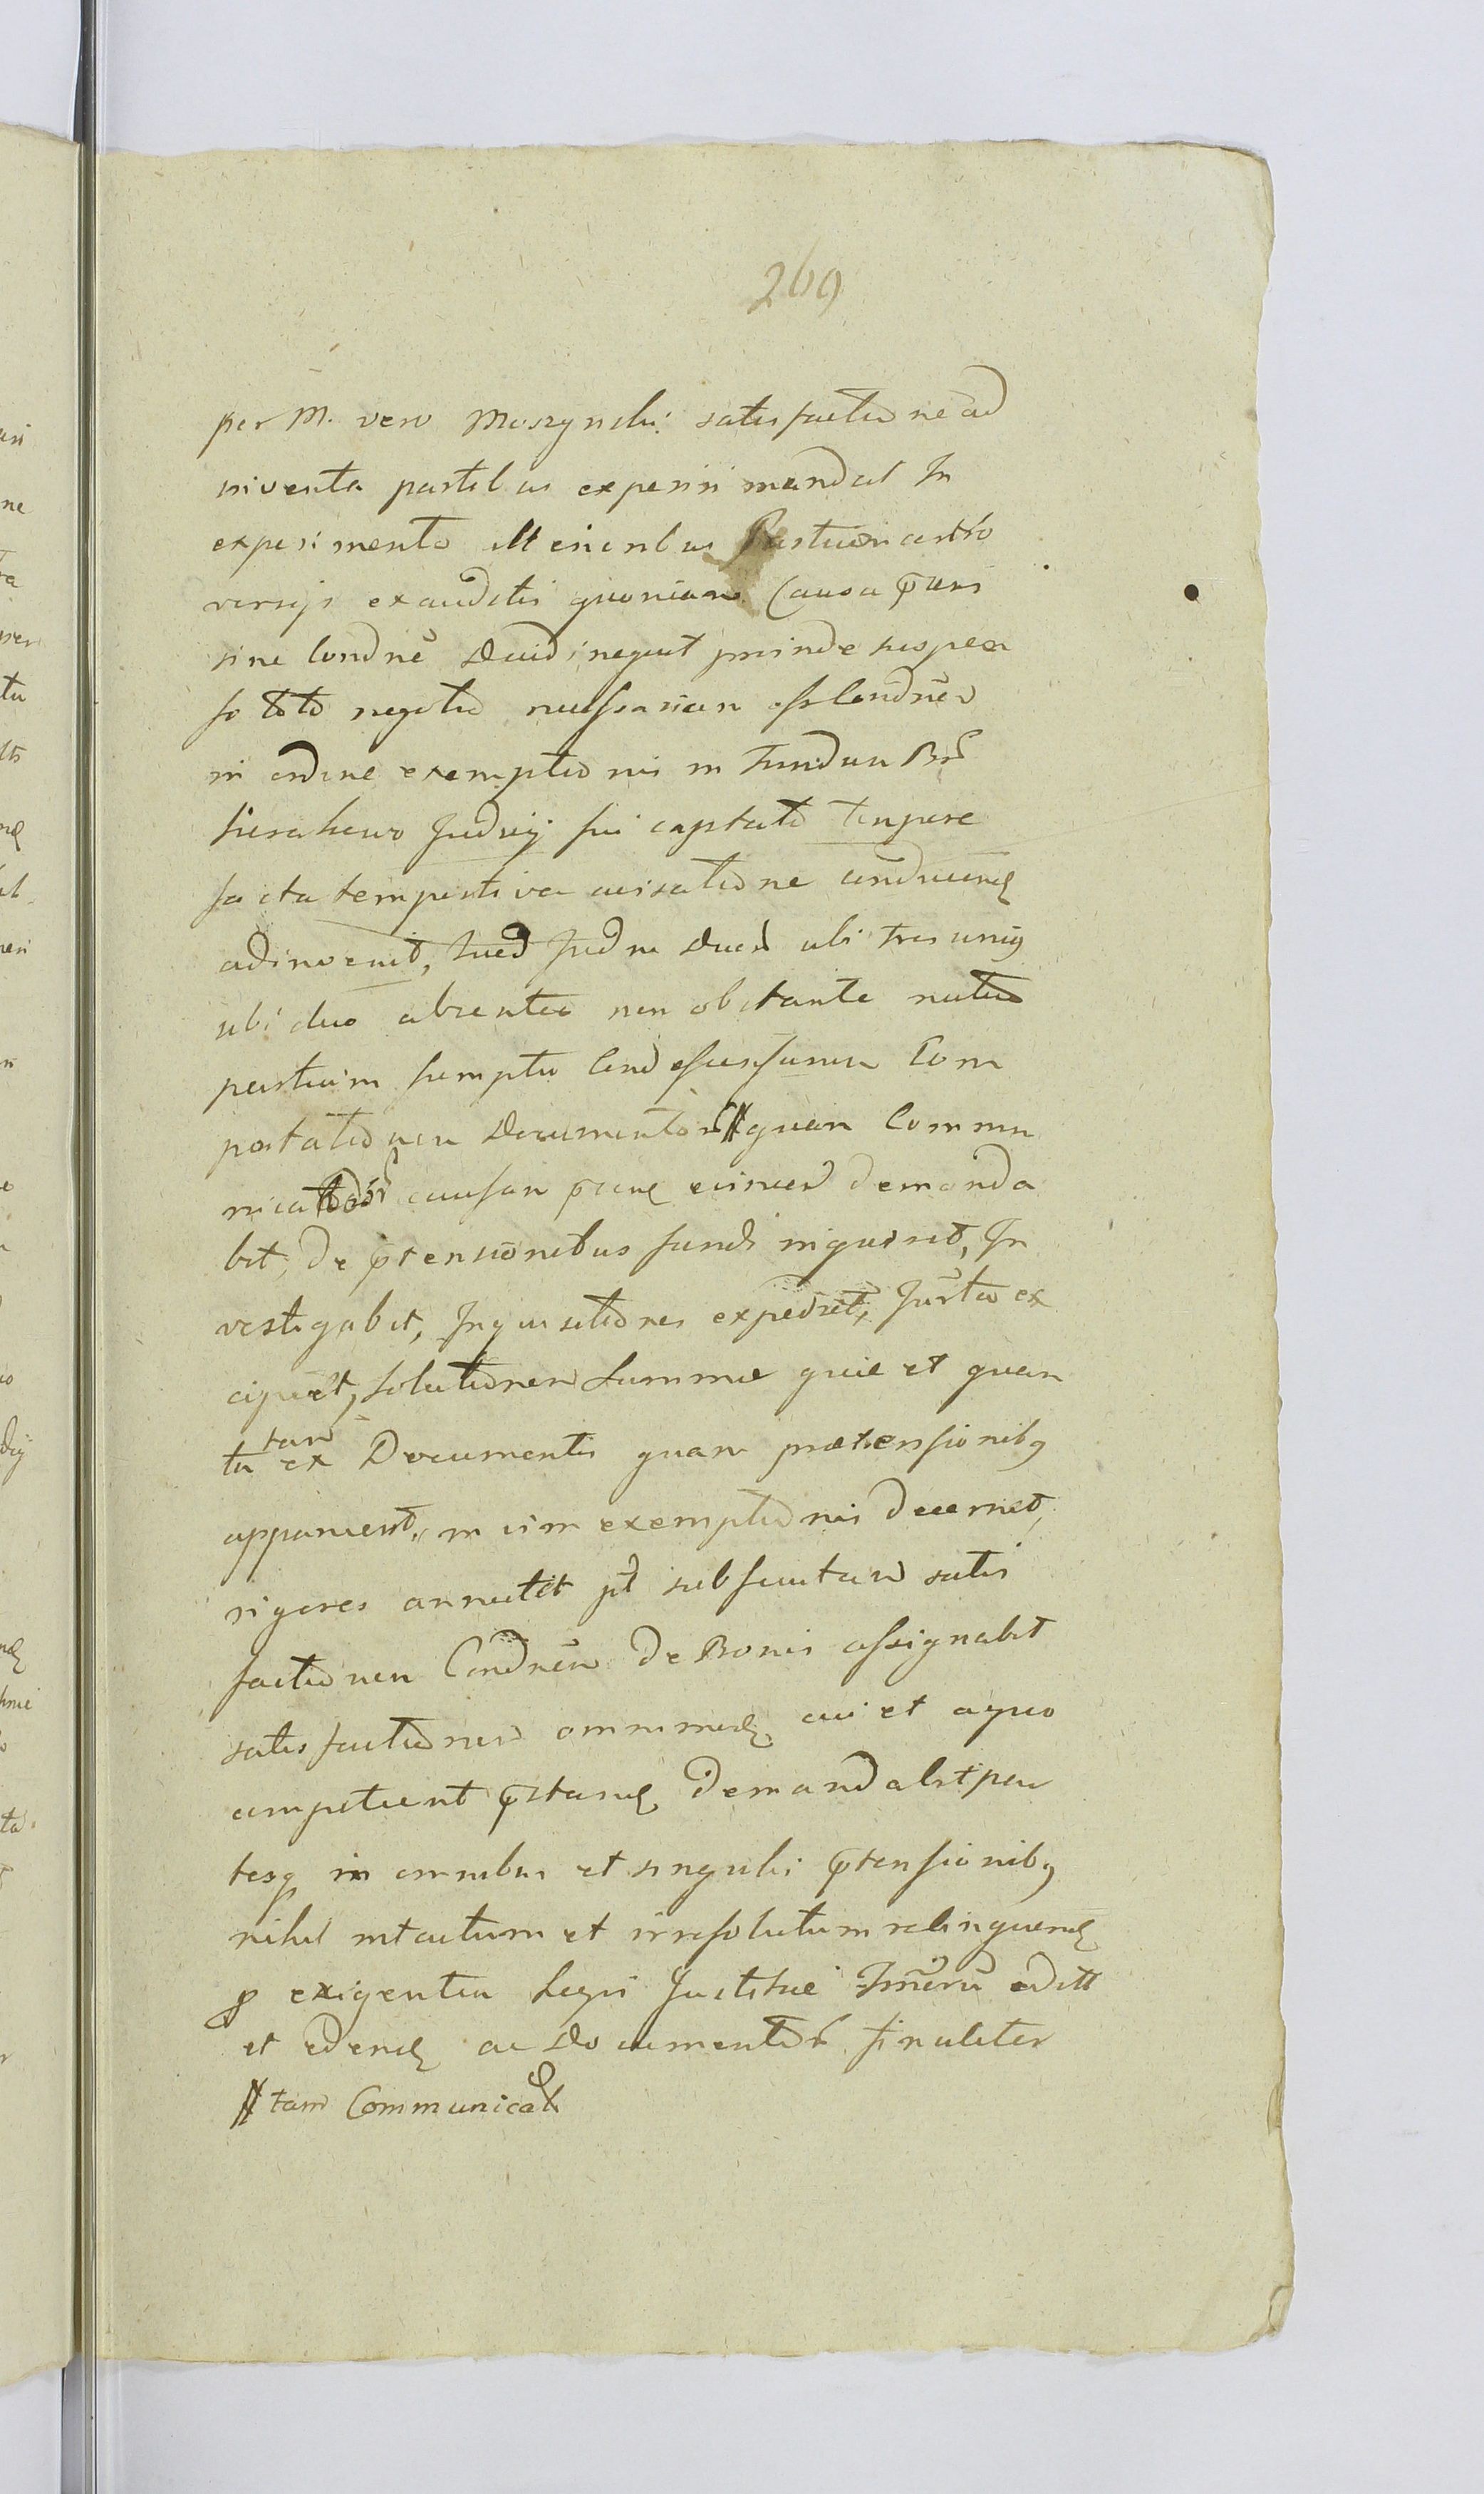 269
per M. vero Moszynski satisfactione ad
inventa partibus experiri mandat In
experimento ulterioribus Partium contro
versijs exauditis quoniam Causa p̄ns
sine Condnē Decidi nequit proinde suspen
so toto negotio necessariam esse Condnēm
in ordine exemptionis in Fundum
Judcij sui captato tempore
facta tempestiva avisatione condnend
adinvenit, Jud ubi tres unius
ubi duo absentia non obstante
partium sumptu Cond Com
portationem Documentorũ # quam Commu
causam demanda
bit, de p̄tensionibus fundi inquiret, In
vestigabit, Inquisitiones expediet, Jurta ex
cipiet, solutionem Summae quae et quan
ta tam ex Documentis quam praetensionibus
apparuerit, in vim exemptionis decernet,
rigores annectet pt subsecutam satis
factionem Condnēm de Bonis assignabit
satisfactionem omnimod cui et a quo
competierit p̄stand demandabit par
tesq in omnibus et singulis p̄tensionibus
nihil intactum et irresolutum relinquend
p exigentia Legis Justitiae Jnērū editt
et edend ac Documentor finaliter
# tam Communicat